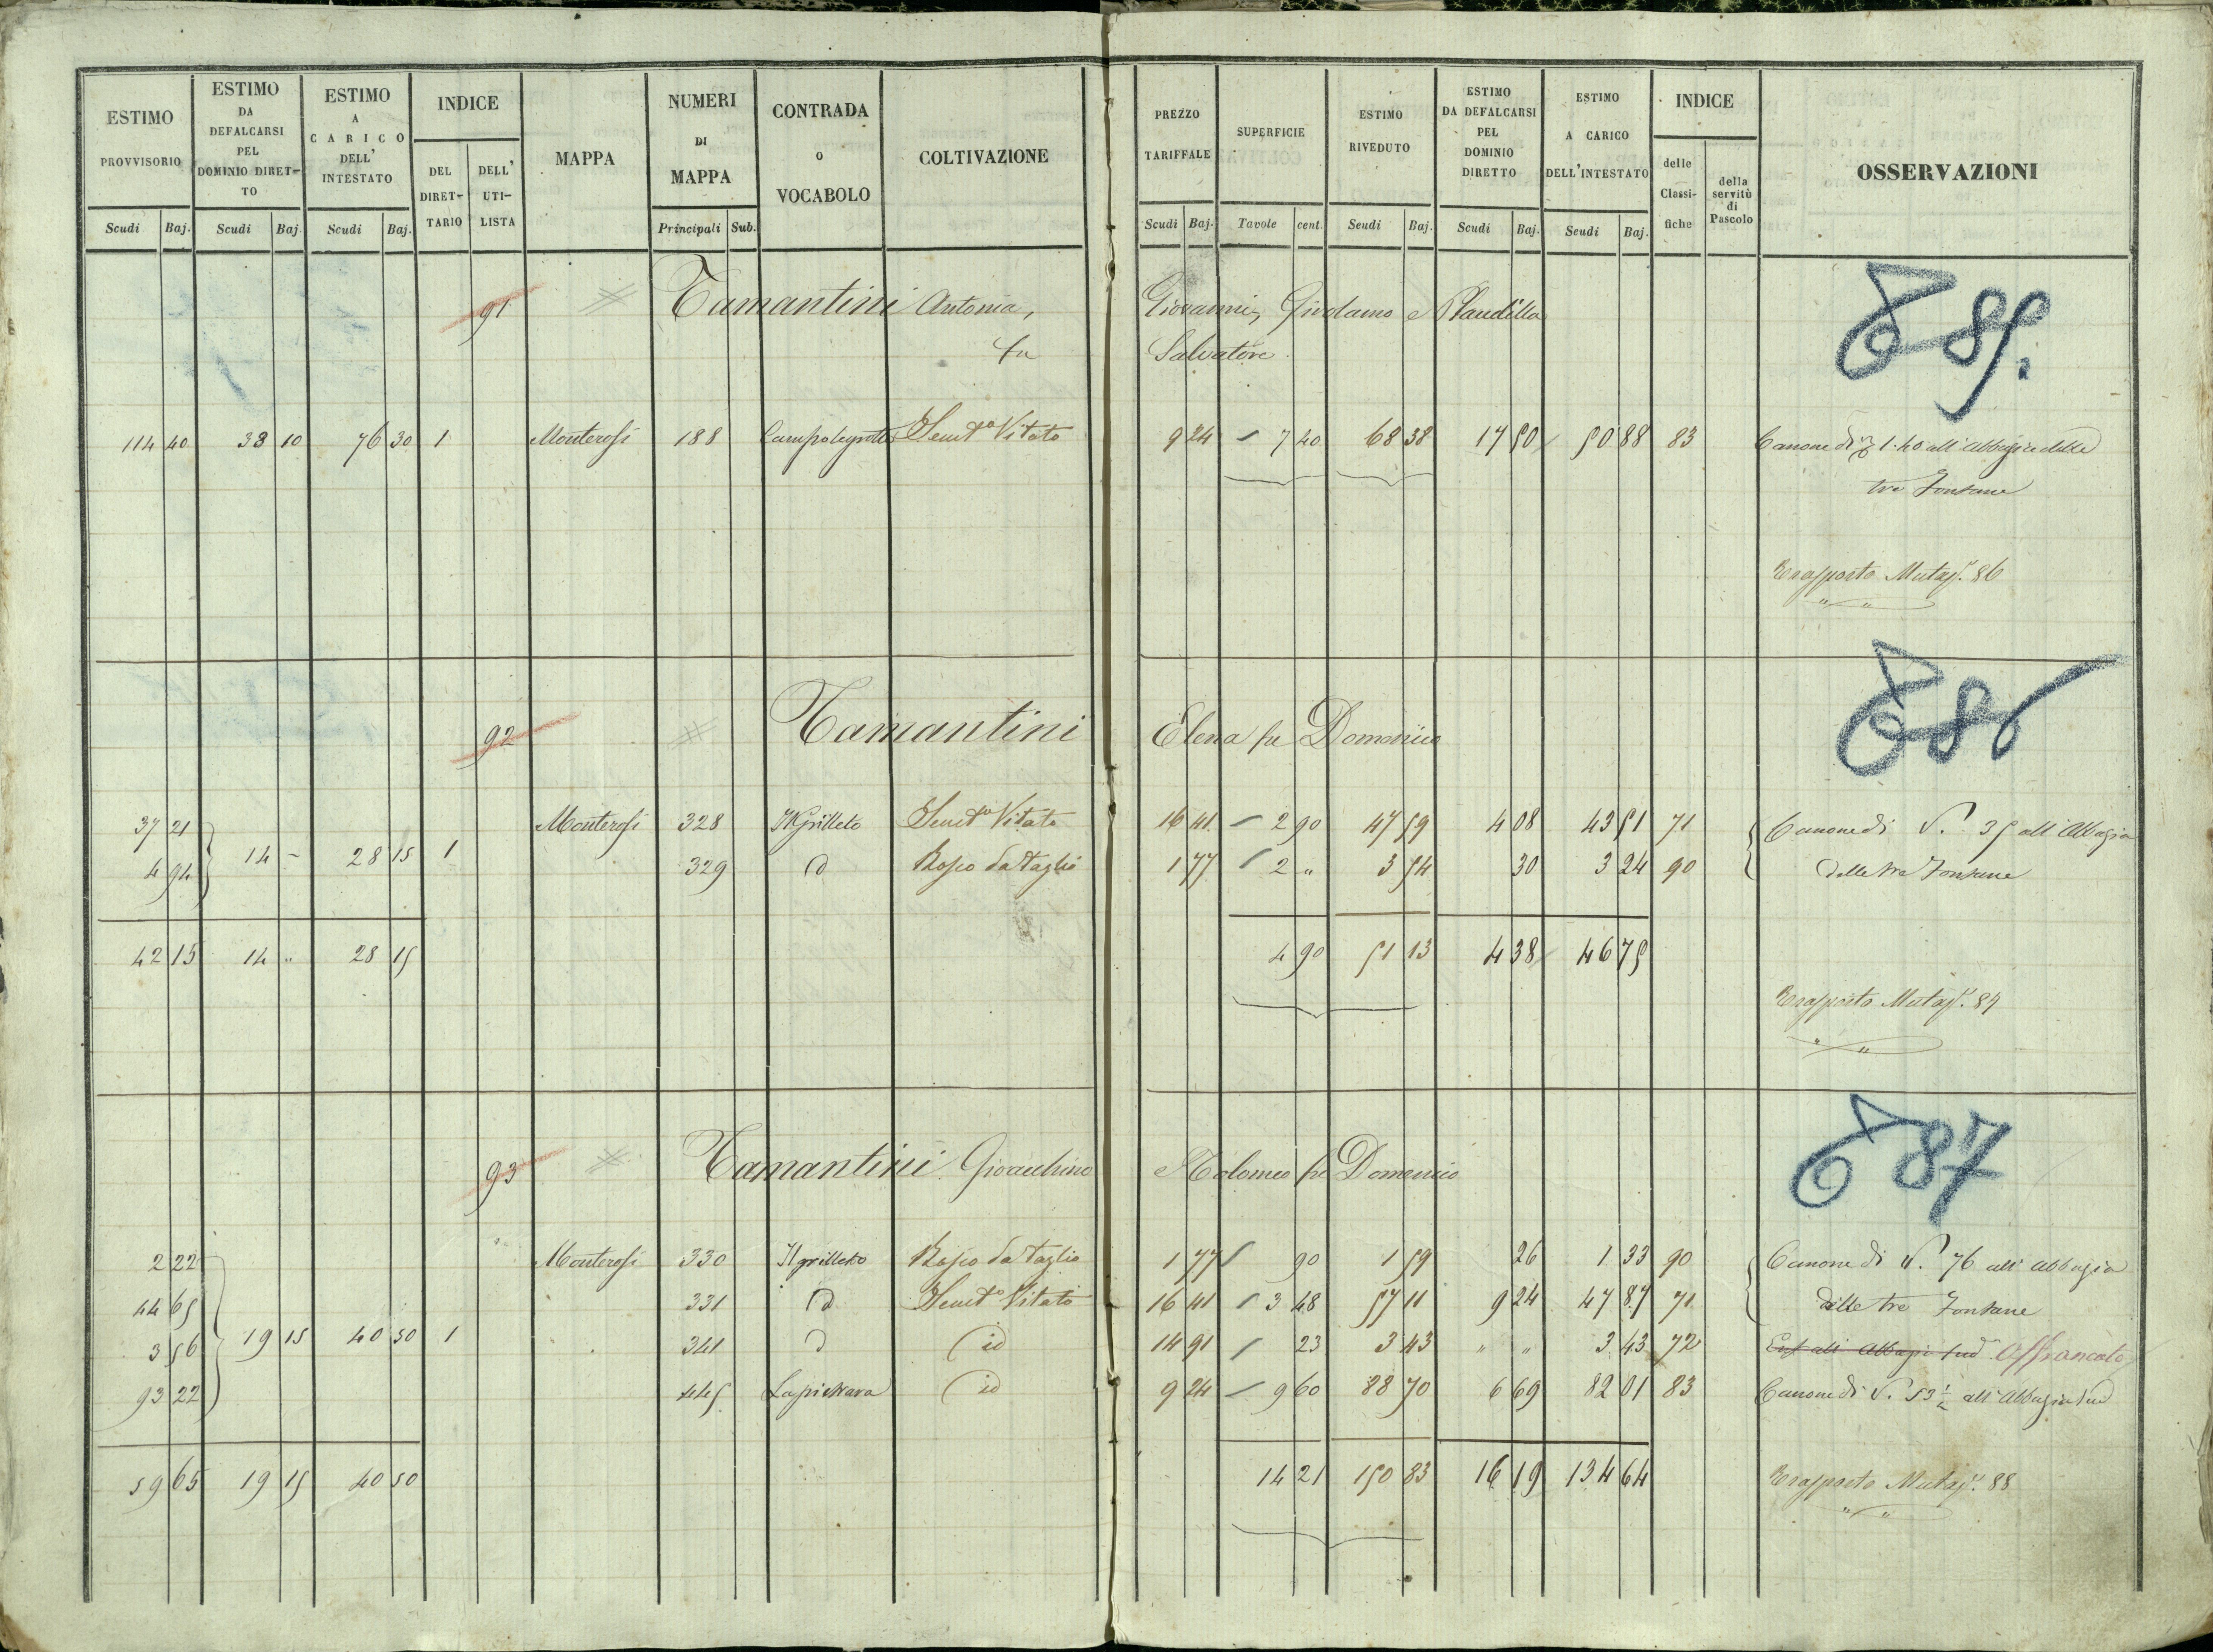 ESTIMO PROVVISORIO | ESTIMO DA DEFALCARSI PEL DOMINIO DIRET-TO | ESTIMO A CARICO DELL' INTESTATO | INDICE | MAPPA | NUMERI DI MAPPA | CONTRADA O VOCABOLO | COLTIVAZIONE | PREZZO TARIFFALE | SUPERFICIE | ESTIMO RIVEDUTO | ESTIMO DA DEFALCARSI PEL DOMINIO DIRETTO | ESTIMO A CARICO DELL'INTESTATO | INDICE | OSSERVAZIONI
DEL DIRET-TARIO | DELL' UTI-LISTA | delle Classi-fiche | della servitù di Pascolo
Scudi | Baj. | Scudi | Baj. | Scudi | Baj. | Principali | Sub. | Scudi | Baj. | Tavole | cent. | Scudi | Baj. | Scudi | Baj. | Scudi | Baj.
91 Tamantini Antonia, Giovanni, Girolamo e Plaudilla 85.
fu Salvatore
114 40 | 38 10 | 76 30 | 1 | Monterosi | 188 | Semto Vitato | 9 24 | 7 40 | 68 38 | 17 50 | 50 88 | 83 | Canone di 1.40 all'Abbazia delle
tre Fontane
Trasporto Mutaz. 86
92 Tamantini Elena fu Domenico 86
37 21 | Monterosi | 328 | Il Grilleto | Semto Vitato | 16 41 | 2 90 | 47 59 | 4 08 | 43 51 | 71 | Canone di 35 all'Abbazia
4 94 | 14 – | 28 15 | 1 | 329 | d | Bosco da Taglio | 1 77 | 2 " | 3 54 | 30 | 3 24 | 90 | delle tre Fontane
42 15 | 14 " | 28 15 | 4 90 | 51 13 | 4 38 | 46 75
Trasporto Mutaz. 87
93 Tamantini Gioacchino e Tolomeo fu Domenico 87
2 22 | Monterosi | 330 | Il grilleto | Bosco da Taglio | 1 77 | 90 | 1 59 | 26 | 1 33 | 90 | Canone di 76 all'abbazia
44 65 | 331 | d | Semto Vitato | 16 41 | 3 48 | 57 11 | 9 24 | 47 87 | 71 | delle tre Fontane
3 56 | 19 15 | 40 50 | 1 | 341 | d | id | 14 91 | 23 | 3 43 | " " | 3 43 | 72 | Affrancato
93 22 | 445 | id | 9 24 | 9 60 | 88 70 | 6 69 | 82 01 | 83 | Canone di 53 1/2 all'Abbazia sud
59 65 | 19 15 | 40 50 | 14 21 | 150 83 | 16 19 | 134 64 | Trasporto Mutaz. 88